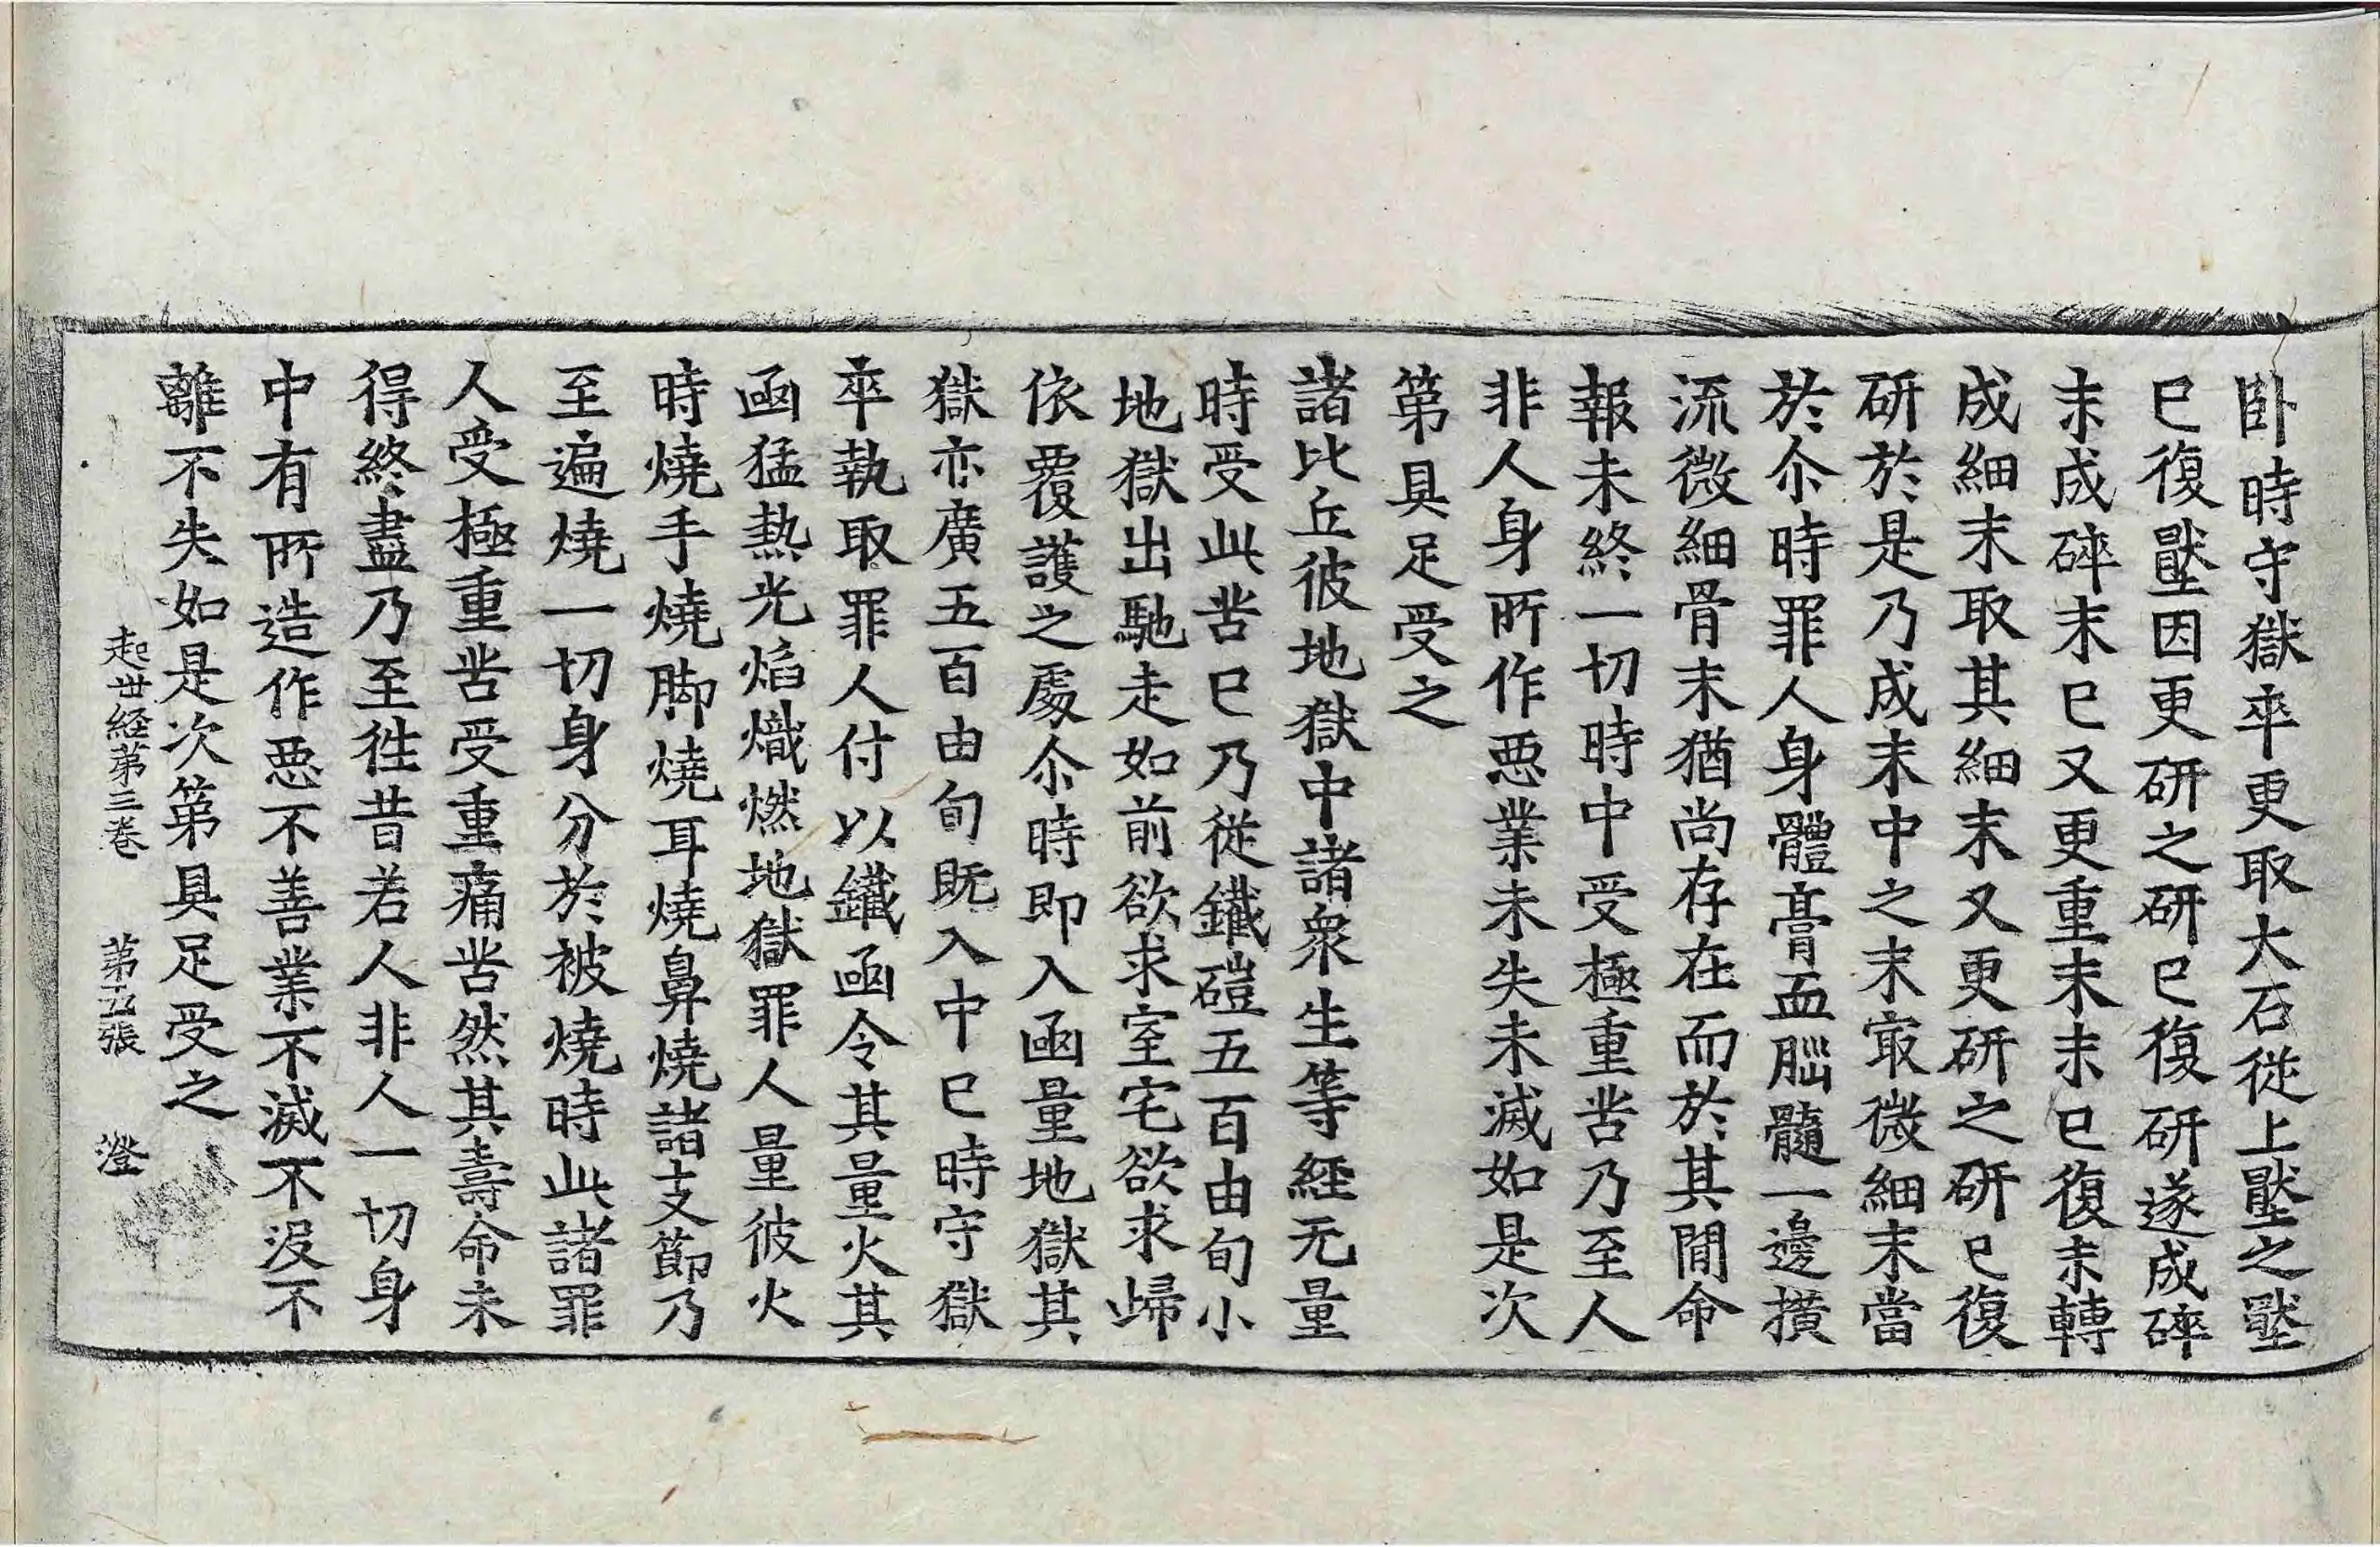 卧時守獄卒更取大石從上壓之壓
已復壓因更研之研已復研遂成碎
末成碎末已又更重末末已復末轉
成細末取其細末又更研之研已復
研於是乃成末中之末㝡微細末當
於尒時罪人身體膏血𦛁髓一邊撗
流微細骨末猶尚存在而於其閒命
報未終一切時中受極重苦乃至人
非人身所作惡業未失未滅如是次
第具足受之
諸比丘彼地獄中諸衆生等經无量
時受此苦已乃從鐵磑五百由旬小
地獄出馳走如前欲求室宅欲求歸
依覆護之處尒時即入函量地獄其
獄亦廣五百由旬既入中已時守獄
卒執取罪人付以鐵函令其量火其
函猛熱光焰熾燃地獄罪人量彼火
時燒手燒脚燒耳燒鼻燒諸支節乃
至遍燒一切身分於被燒時此諸罪
人受極重苦受重痛苦然其壽命未
得終盡乃至徃昔若人非人一切身
中有所造作惡不善業不滅不沒不
離不失如是次第具足受之
起世経第三卷 第五張 澄